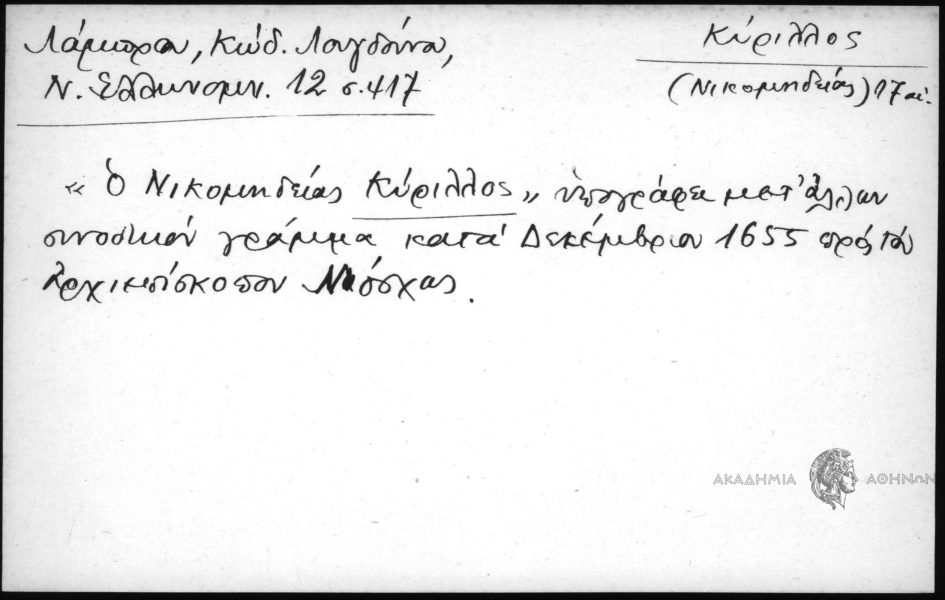 Λάμπρου, Κώδ. Λουγδούνα,
Ν. Ελληνομν. 12 σ. 417
Κύριλλος
(Νικομηδείας) 17 αἰ.
« Ὁ Νικομηδείας Κύριλλος » ὑπογράφει μετ' ἄλλων
συνοδικόν γράμμα κατά Δεκέμβριον 1655 πρός τόν
Ἀρχιεπίσκοπον Μόσχας.
ΑΚΑΔΗΜΙΑ ΑΘΗΝΩΝ